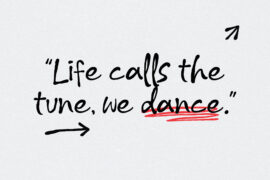 “Life calls the
tune, we dance.”